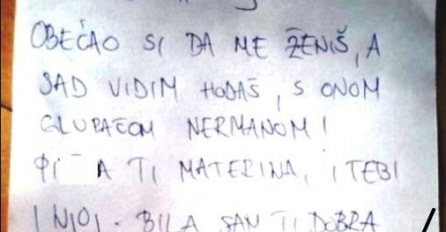 OBEĆAO SI DA ME ŽENIŠ, A
SAD VIDIM HODAŠ, S ONOM
GLUPAČOM NERMANOM!
A TI MATERINA, I TEBI
I NJOJ. BILA SAN TI DOBRA